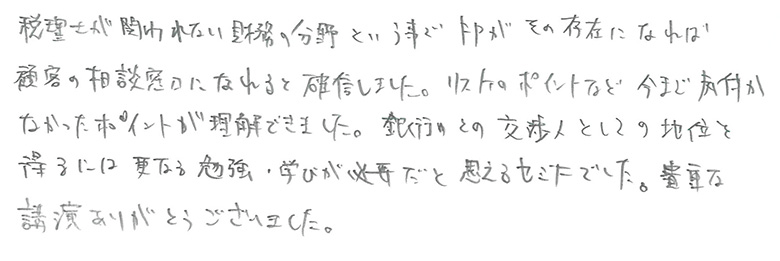 税理士が関われない財務の分野という事で FPがその存在になれば
顧客の相談窓口になれると確信しました。リスケのポイントなど今まで気付か
なかったポイントが理解できました。銀行との交渉人としての地位を
得るには更なる勉強・学びが必要だと思えるセミナーでした。貴重な
講演ありがとうございました。